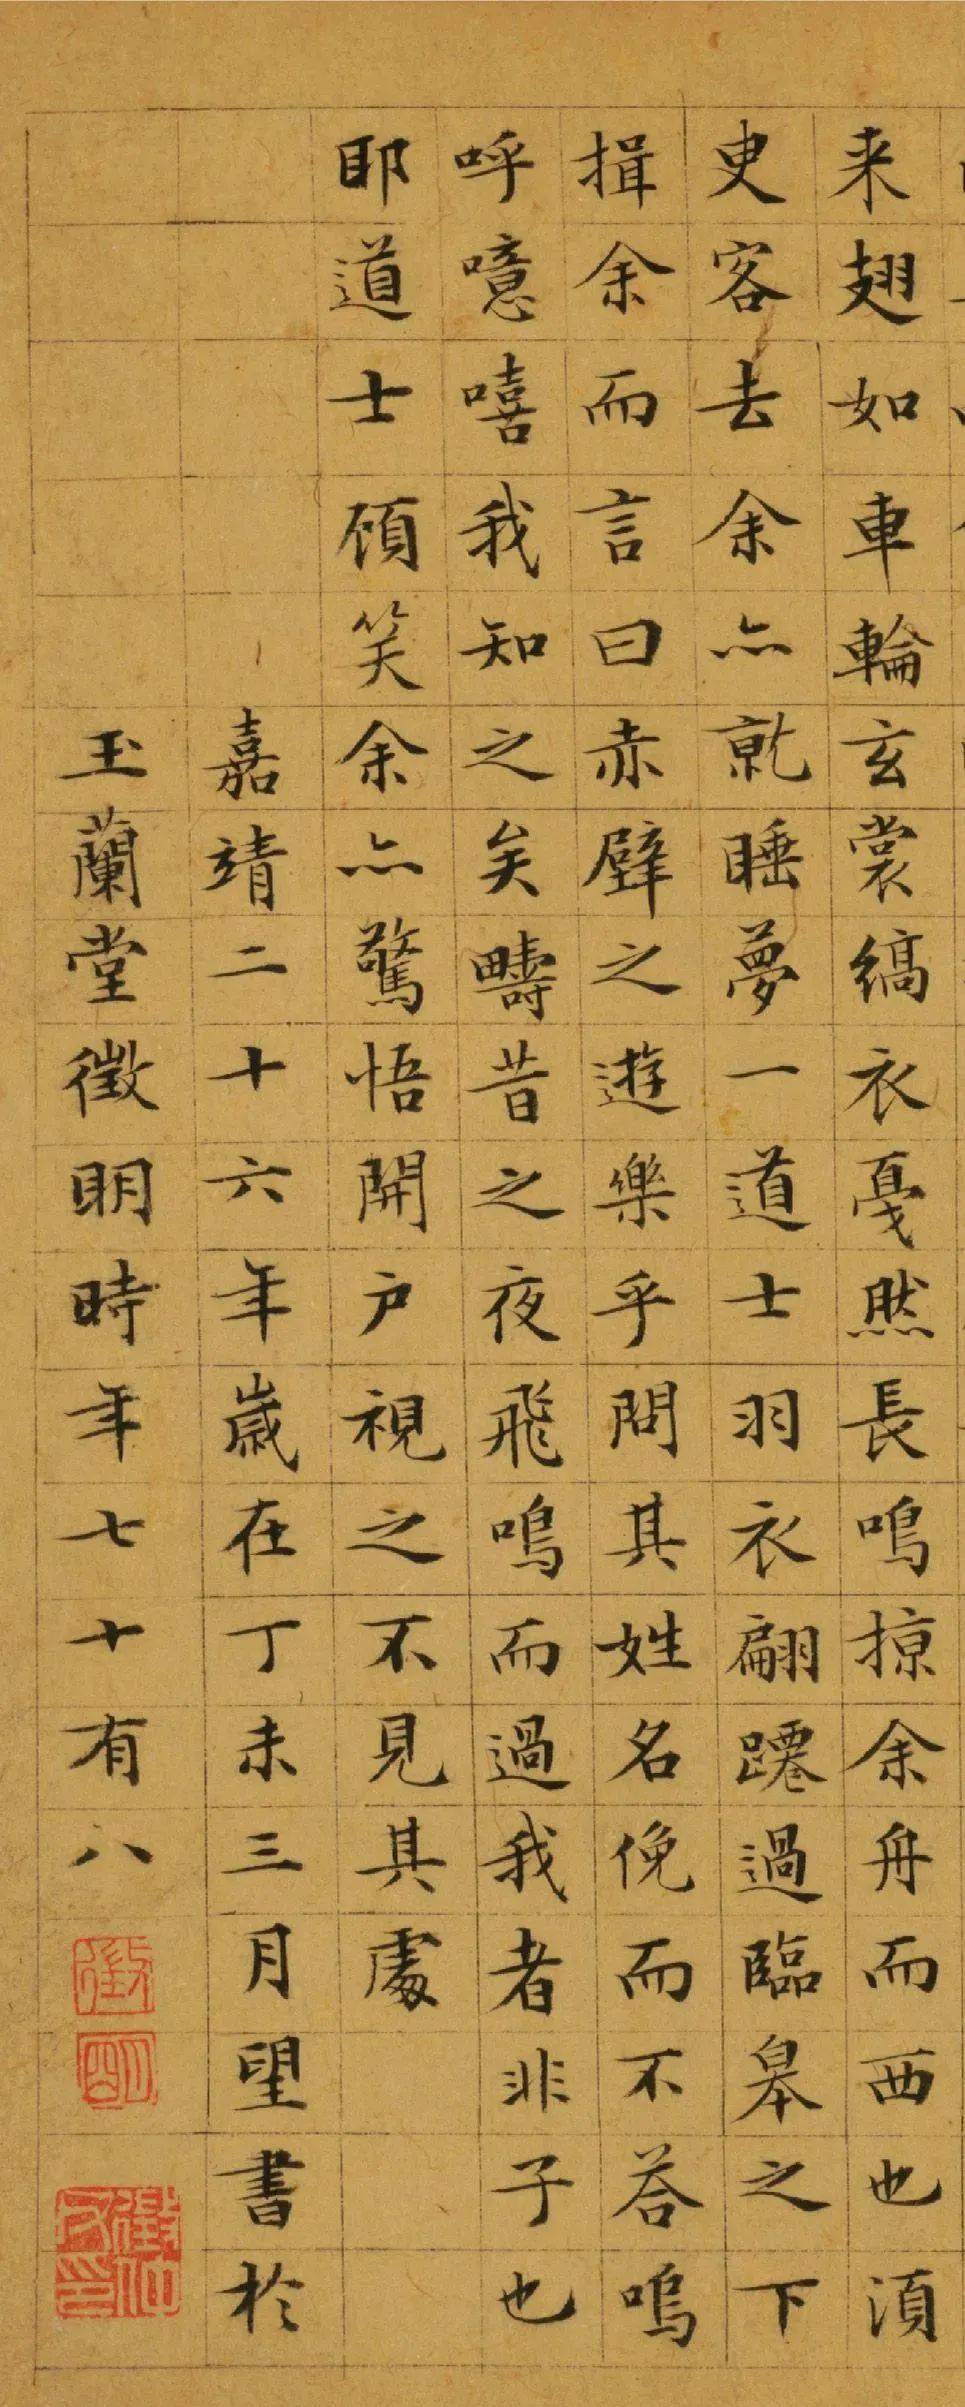 来翅如車輪玄裳縞衣戛然長鳴掠余舟而西也須
臾客去余亦就睡夢一道士羽衣翩躚過臨皋之下
揖余而言曰赤壁之遊樂乎問其姓名俛而不荅嗚
呼噫嘻我知之矣疇昔之夜飛鳴而過我者非子也
耶道士顧笑余亦驚悟開户視之不見其處
嘉靖二十六年歲在丁未三月望書於
玉蘭堂徵明時年七十有八
徵
明